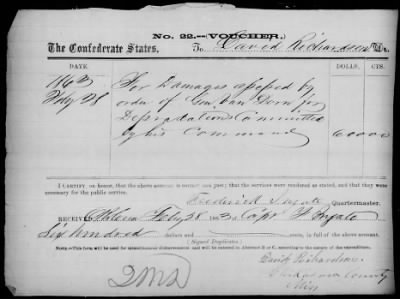 No. 22.—(VOUCHER.)
The Confederate States, To David Richardson Dr.
DATE. DOLLS. CTS.
1863
Feby 28 For Damages assessed by
order of Gen Van Dorn for
Depredations Committed
by his Command 600 00
I CERTIFY on honor, that the above account is correct and just; that the services were rendered as stated, and that they were
necessary for the public service.
Frederick Ingate Quartermaster.
RECEIVED Feby 28 1863, of Capt F Ingate
Six hundred dollars and cents, in full of the above account.
(Signed Duplicates.)
NOTE.—This form will be used for miscellaneous disbursements and will be entered in Abstract B or C, according to the nature of the expenditure.
David Richardson
County
Miss